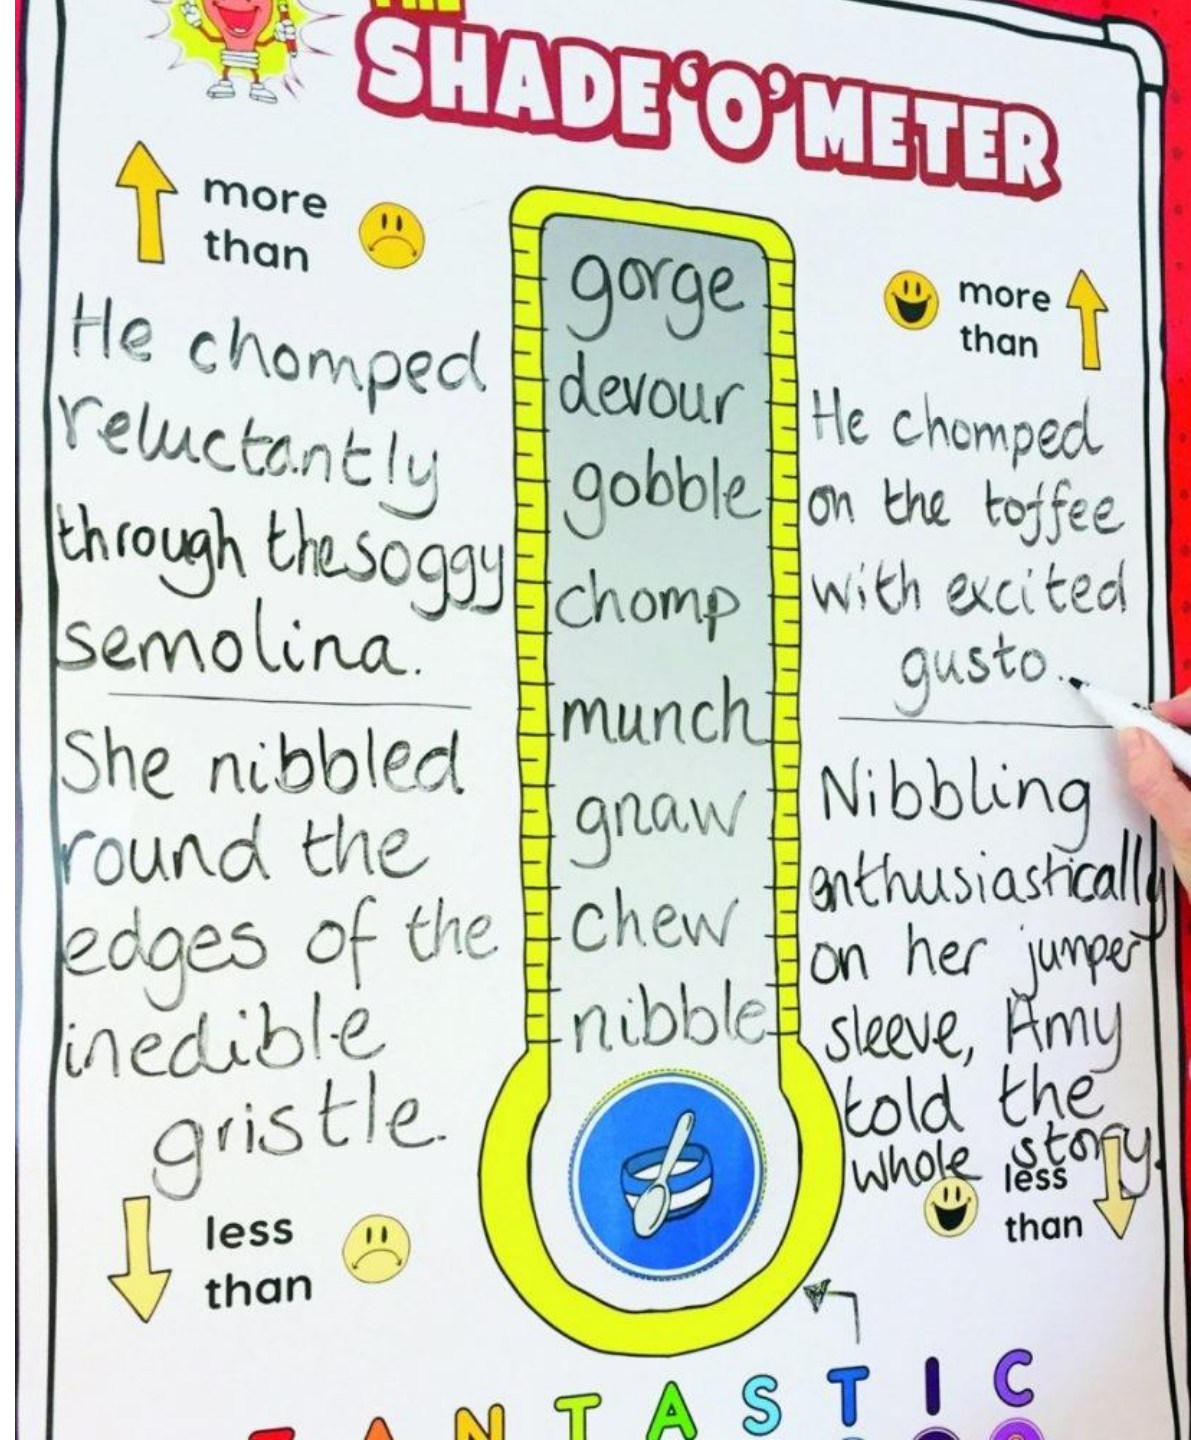 THE
SHADE 'O' METER
more
than
He chomped
reluctantly
through the soggy
semolina.
She nibbled
round the
edges of the
inedible
gristle.
less
than
gorge
devour
gobble
chomp
munch
gnaw
chew
nibble
more
than
He chomped
on the toffee
with excited
gusto.
Nibbling
enthusiastically
on her jumper
sleeve, Amy
told the
whole story.
less
than
FANTASTIC